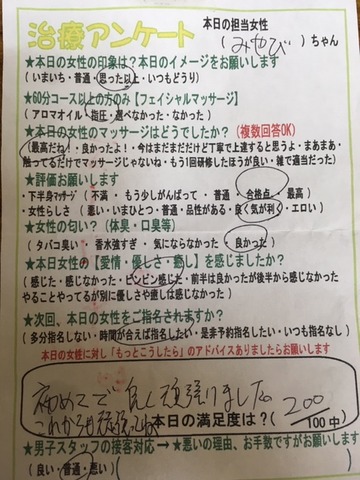 治療アンケート 本日の担当女性
( みやび )ちゃん
★本日の女性の印象は?本日のイメージをお願いします
( いまいち・普通・思った以上・いつもどうり )
★60分コース以上の方のみ【フェイシャルマッサージ】
( アロマオイル・指圧・選べなかった・なかった )
★本日の女性のマッサージはどうでしたか?(複数回答OK)
(最高だね!・良かったよ!・今はまだまだだけど丁寧で上達すると思うよ・まあまあ・
触ってるだけでマッサージじゃないね・もう1回研修したほうが良い・雑で適当だった)
★評価お願いします
・下半身マッサージ ( 不満 ・ もう少しがんばって ・ 普通 ・ 合格点 ・ 最高 )
・女性らしさ ( 悪い・いまひとつ・普通・品性がある・良く気が利く・エロい )
★女性の匂い?(体臭・口臭等)
( タバコ臭い ・ 香水強すぎ ・ 気にならなかった ・ 良かった )
★本日女性の【愛情・優しさ・癒し】を感じましたか?
( 感じた・感じなかった・ビンビン感じた・前半は良かったが後半から感じなかった
やることやってるが別に優しさや癒しは感じなかった )
★次回、本日の女性をご指名されますか?
( 多分指名しない・時間が合えば指名したい・是非予約指名したい・いつも指名なし )
本日の女性に対し「もっとこうしたら」のアドバイスありましたらお願いします
初めてで良く頑張りました。
これからも頑張ってね
本日の満足度は?( 200 /100中 )
★男子スタッフの接客対応→★悪いの理由、お手数ですがお願いします
( 良い・普通・悪い ) (